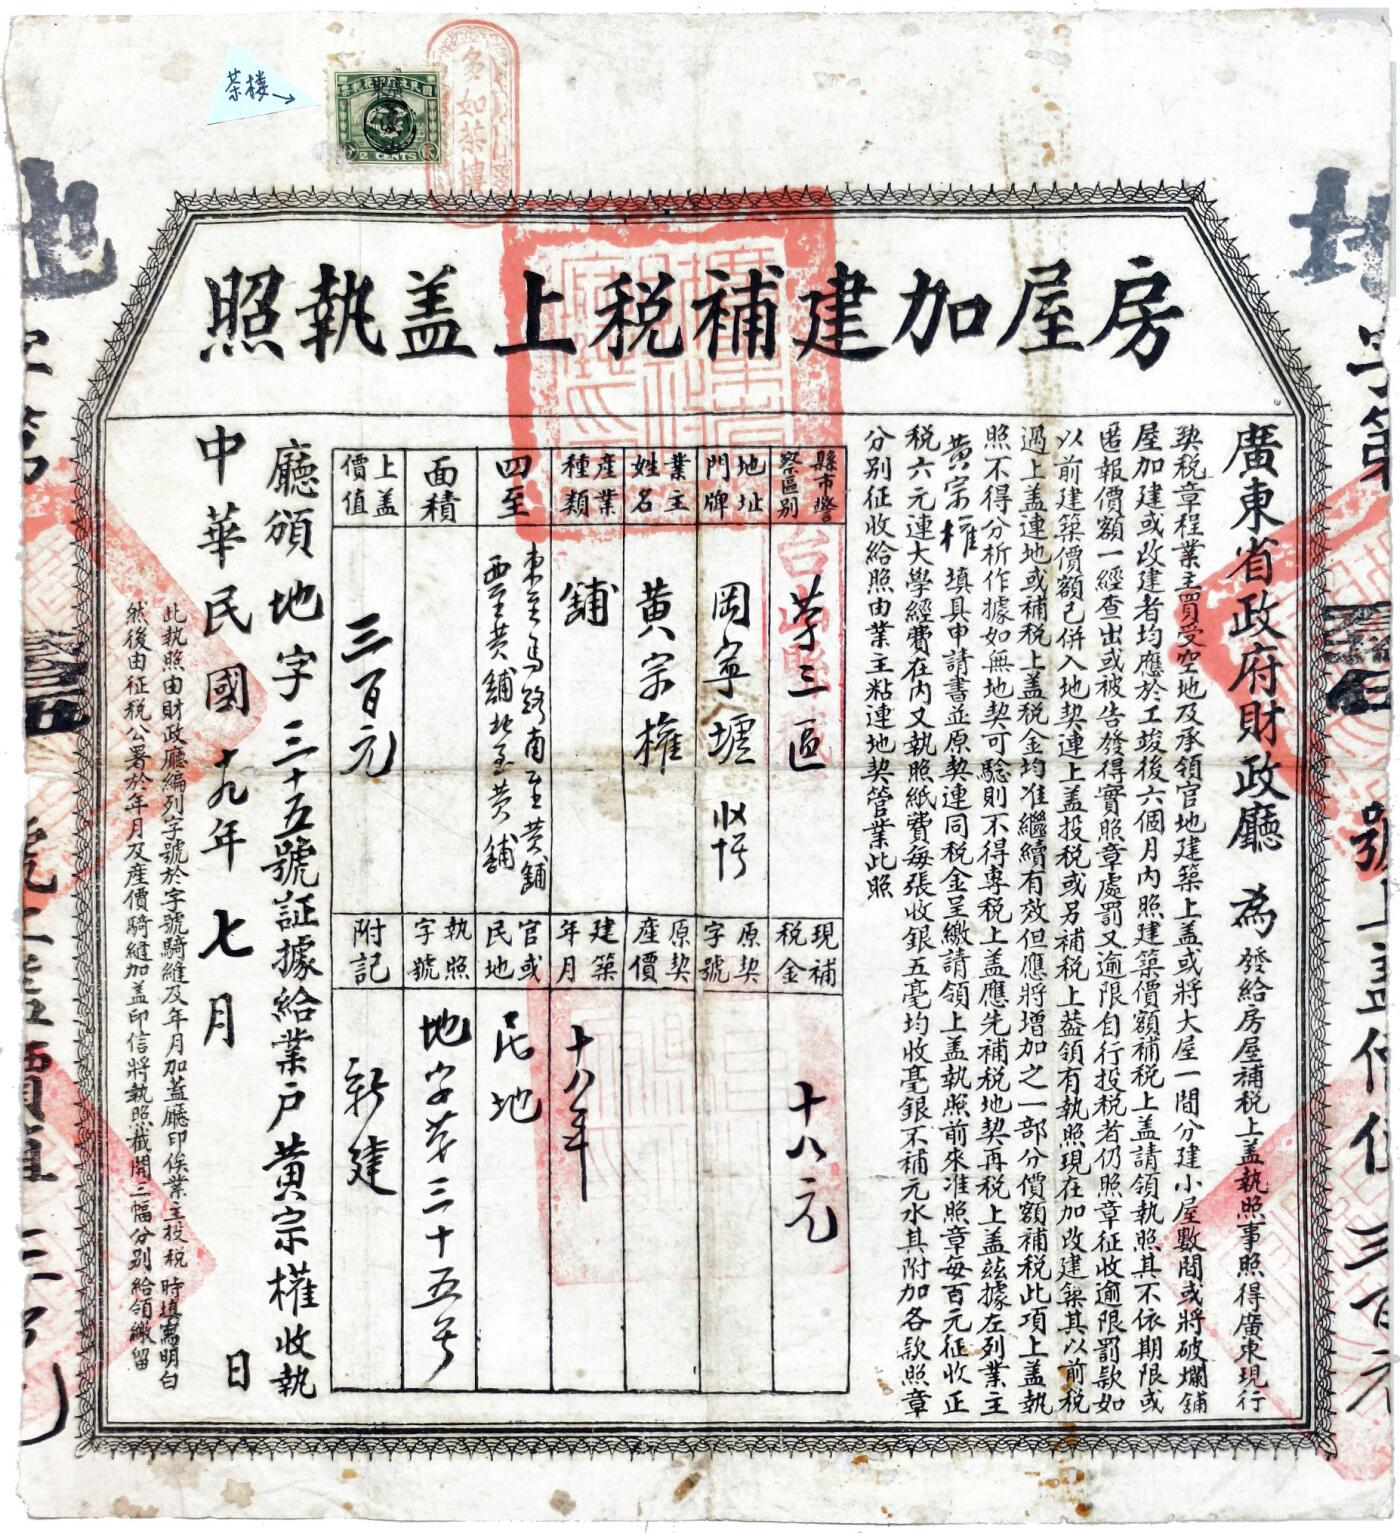 茶楼→
多如茶樓
2 CENTS
房屋加建補税上盖執照
廣東省政府財政廳 為 發給房屋補税上盖執照事照得廣東現行
契税章程業主買受空地及承領官地建築上盖或將大屋一間分建小屋數間或將破爛舖
屋加建或改建者均應於工竣後六個月內照建築價額補税上盖請領執照其不依期限或
匿報價額一經查出或被告發得實照章處罰又逾限自行投税者仍照章征收逾限罰款如
以前建築價額已併入地契連上盖投税或另補税上盖領有執照現在加改建築其以前税
過上盖連地或補税上盖税金均准繼續有效但應將增加之一部分價額補税此項上盖執
照不得分析作據如無地契可驗則不得專税上盖應先補税地契再税上盖茲據左列業主
黄宗權 填具申請書並原契連同税金呈繳請領上盖執照前來准照章每百元征收正
税六元連大學經費在內又執照紙費每張收銀五毫均收毫銀不補元水其附加各款照章
分別征收給照由業主粘連地契管業此照
縣市警察區別
第三區
地址門牌
岡寧墟
業主姓名
黄宗權
產業種類
舖
四至
東至馬路南至黄舖
西至黄舖北至黄舖
面積
上盖價值
三百元
現補税金
十八元
原契字號
原契產價
建築年月
十八年
官或民地
民地
執照字號
地字第三十五号
附記
新建
廳頒地字三十五號証據給業戶黄宗權收執
中華民國十九年七月 日
此執照由財政廳編列字號於字號騎縫及年月加蓋廳印俟業主投税時填寫明白
然後由征税公署於年月及產價騎縫加盖印信將執照截開三幅分別給領繳留